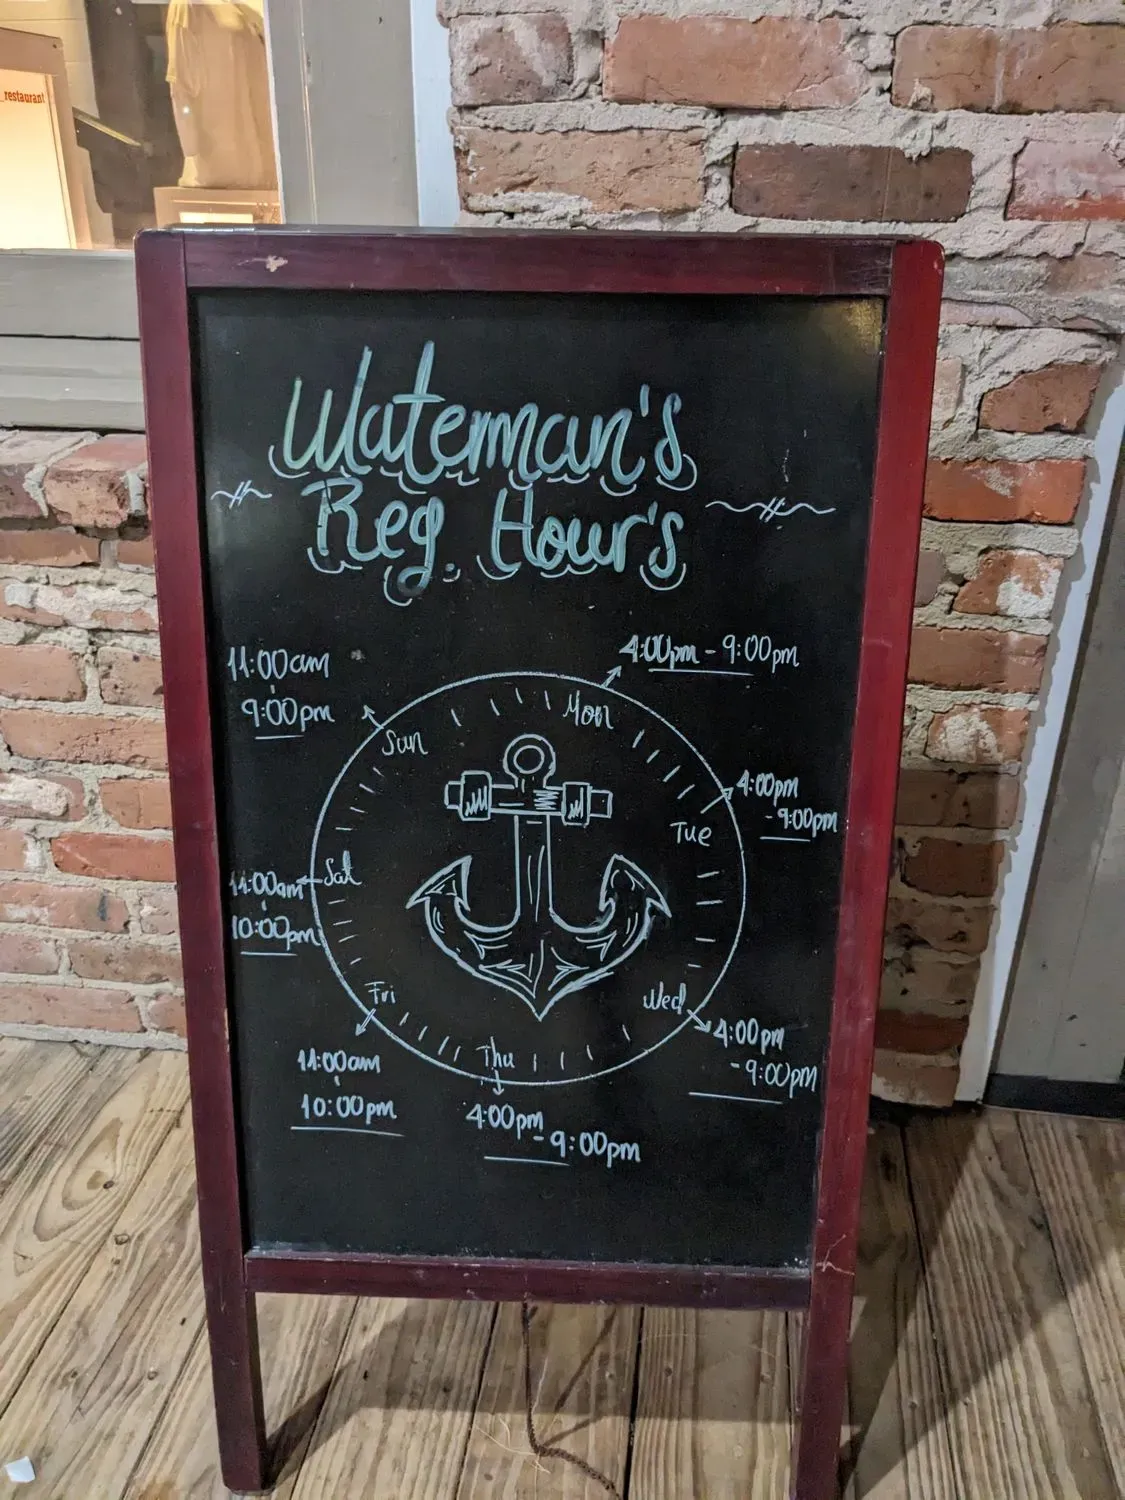 _restaurant
Waterman's
Reg. Hour's
Mon
4:00pm - 9:00pm
Tue
4:00pm
- 9:00pm
Wed
4:00pm
- 9:00pm
Thu
4:00pm
- 9:00pm
Fri
11:00am
-
10:00pm
Sat
11:00am
-
10:00pm
Sun
11:00am
-
9:00pm